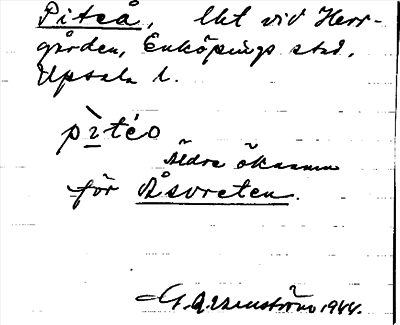 Piteå, lht vid Herr-
gården, Enköpings stad,
Upsala l.
pìtéo
Äldre öknamn
för Åsvreten.
1944.